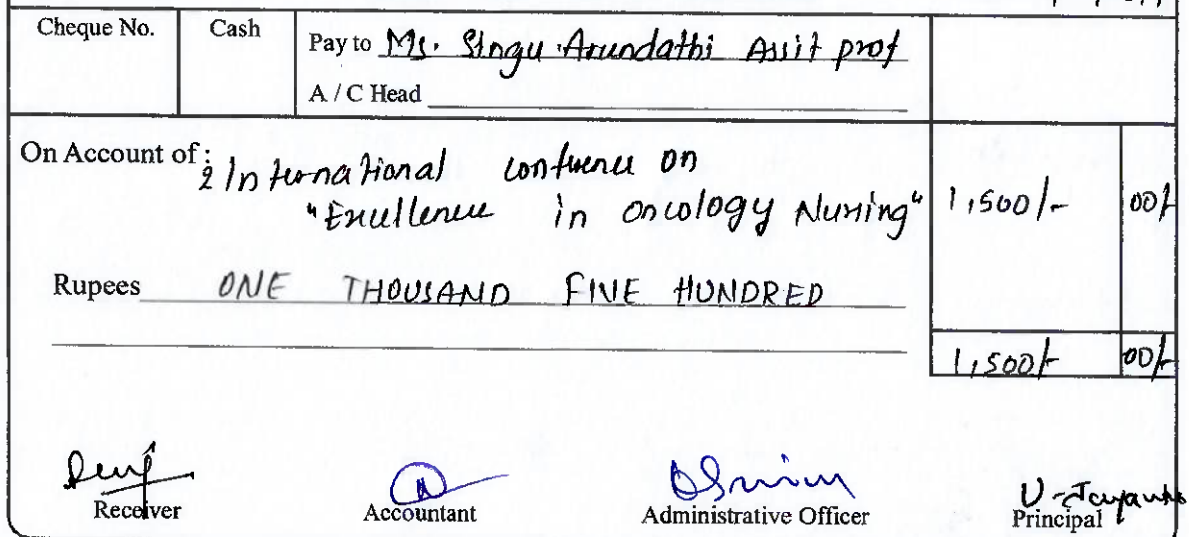 Cheque No. Cash Pay to Ms. Singu Arundathi Assit prof
A / C Head
On Account of :
2 International conference on
"Excellence in oncology Nursing" 1,500/- 00/-
Rupees ONE THOUSAND FIVE HUNDRED
1,500/- 00/-
Receiver Accountant Administrative Officer Principal